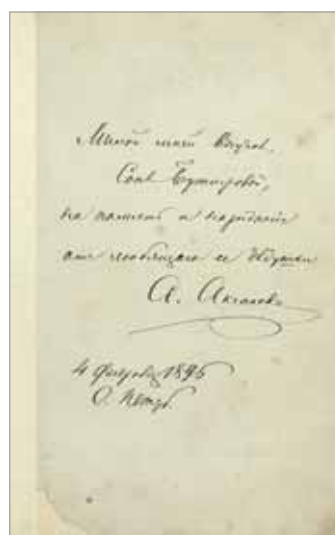 Милой моей Внучкѣ,
Сонѣ Бутлеровой,
на память и назиданіе
отъ любящаго ее Дѣдушки
А. Аксакова
4 Февраля 1896
С. Петрб.